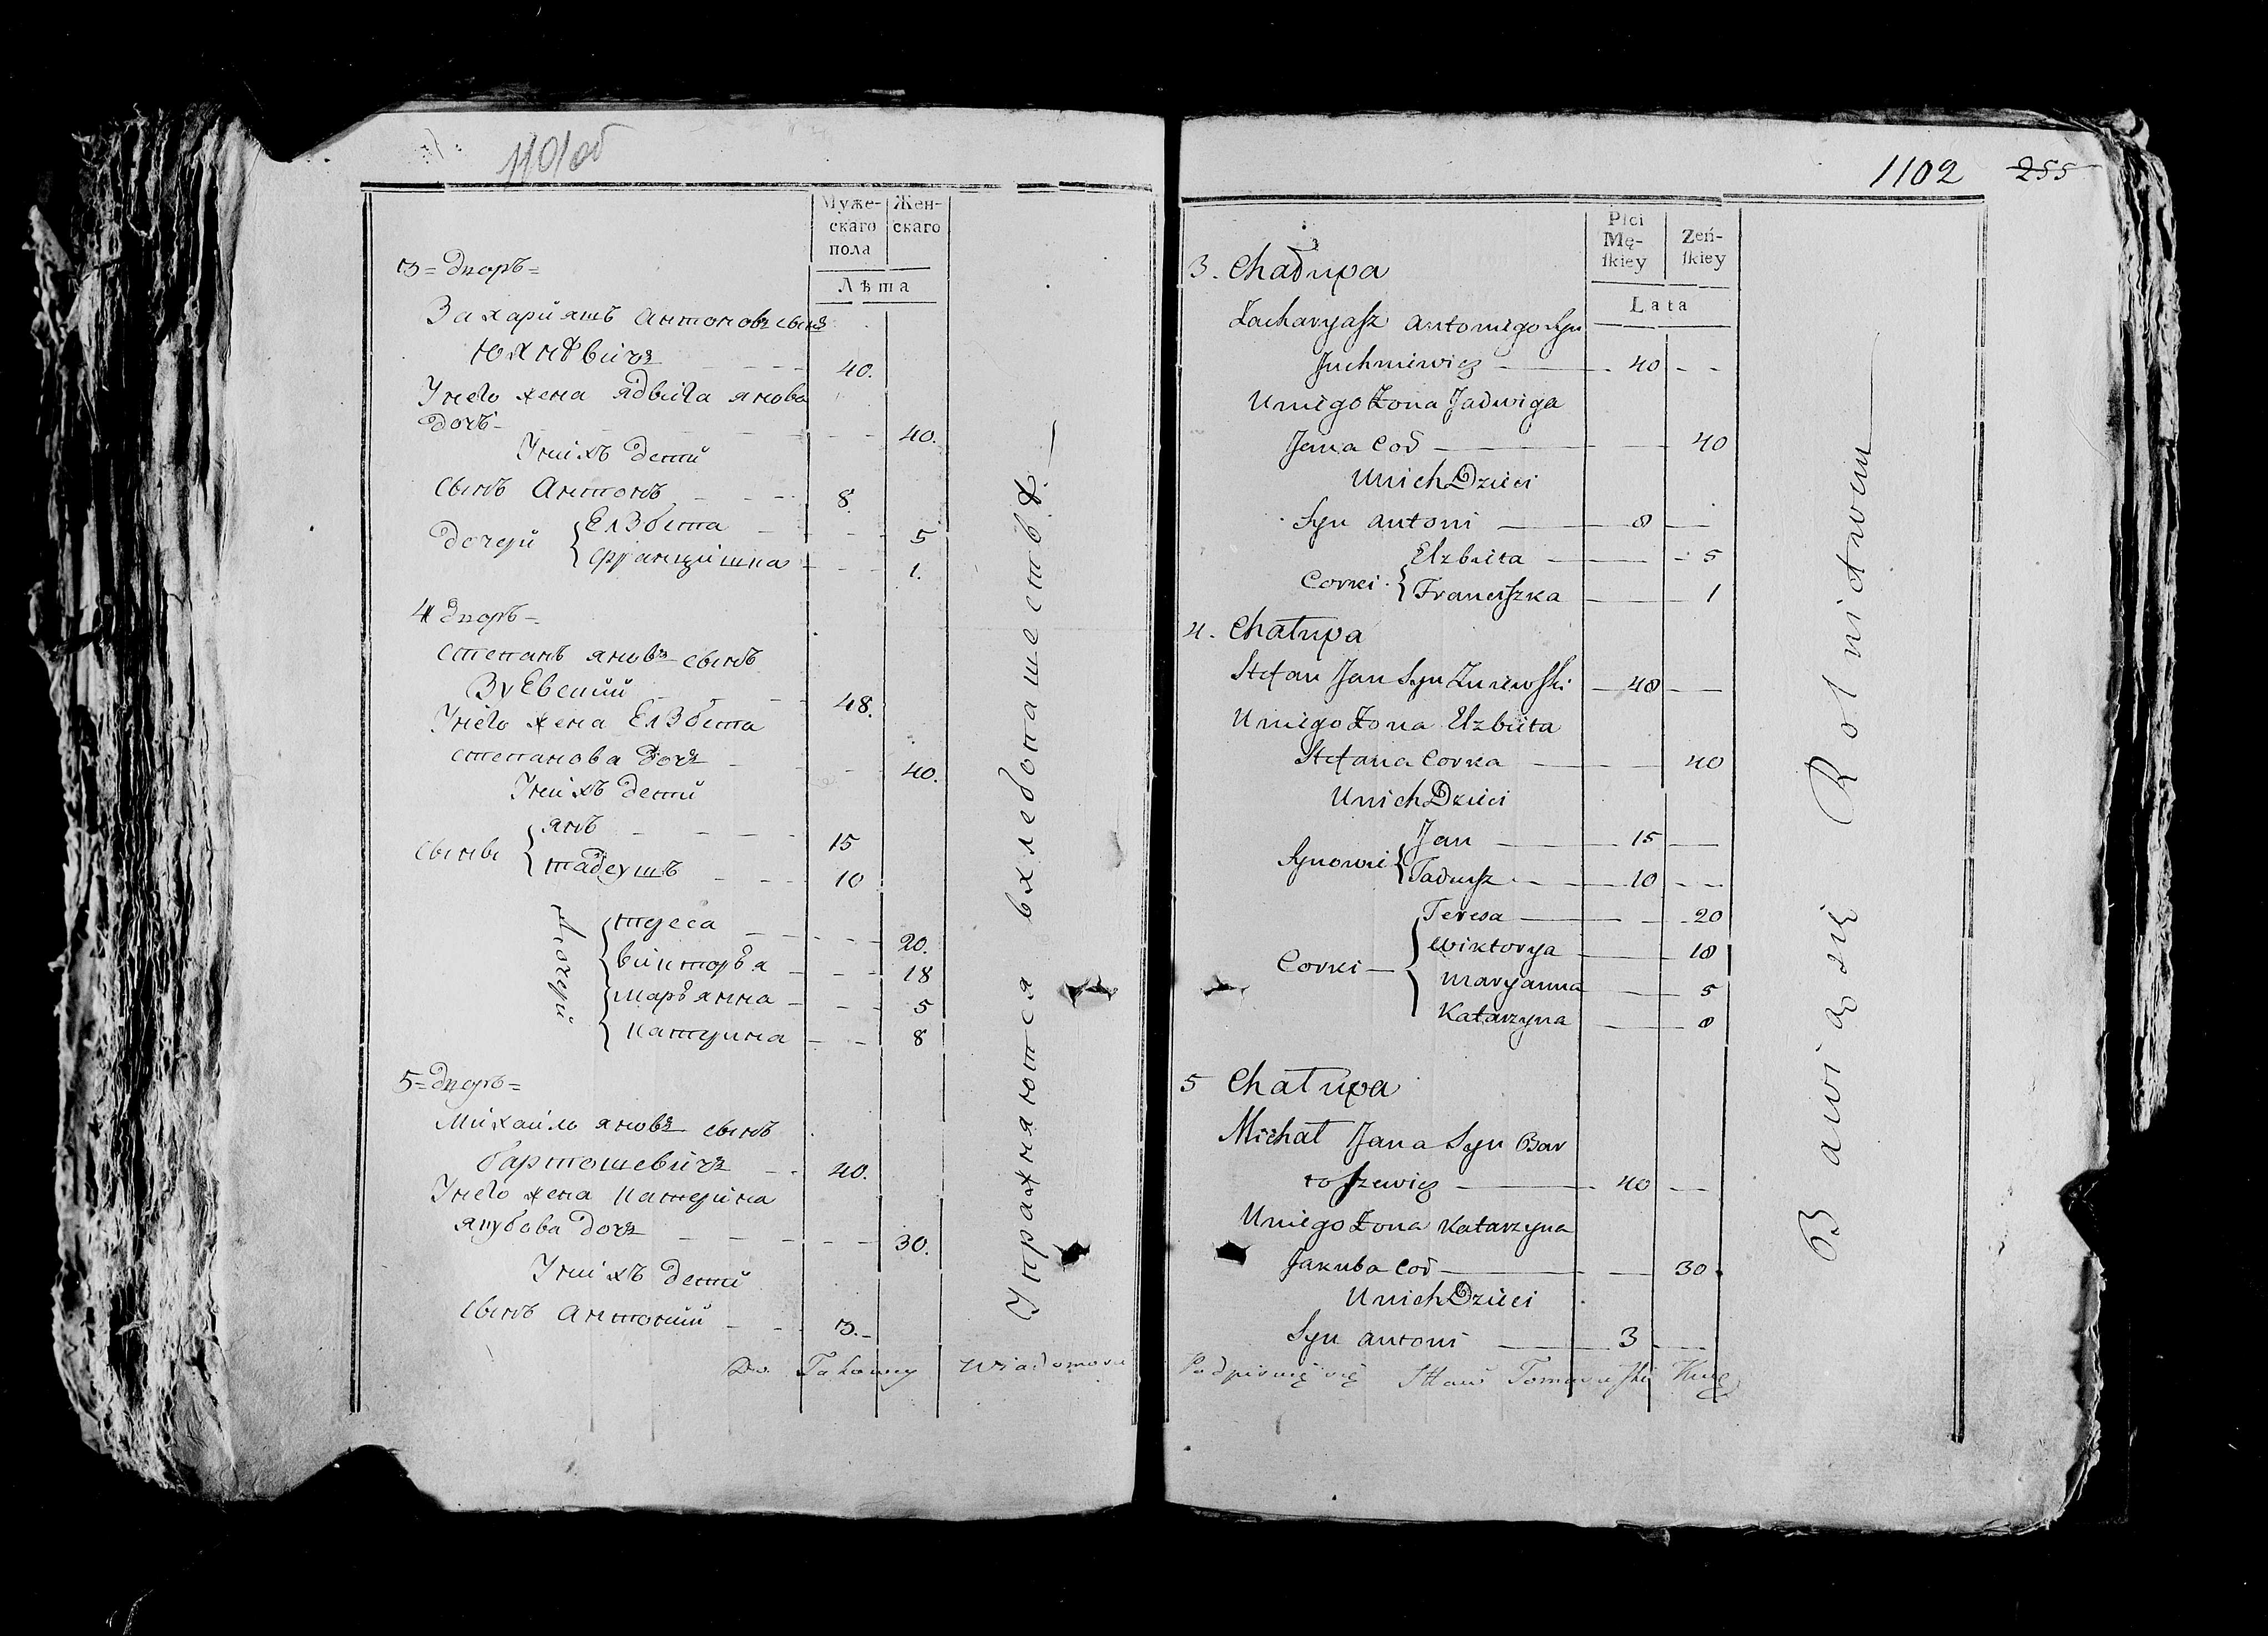 1101об
Муже-
скаго
пола
Жен-
скаго
Лѣта
3 = дворъ =
Захаріяшъ антоновъ сынъ
Юхнѣвичъ 40.
Унего жена Ядвига янова
дочь 40.
Унихъ детй
сынъ Антонъ 8.
дочерй { Елзбета 5
францишка 1.
4 дворъ =
степанъ яновъ сынъ
Зуевскій 48.
Унего жена Елзбета
степанова дочь 40.
Унихъ детй
сынвь { янъ 15
тадеушъ 10
дочерй { тереса 20.
викторъя 18
маръянна 5
катерина 8
5 = дворъ =
михайло яновъ сынъ
бартошевичъ 40.
Унего жена катерина
якубова дочь 30.
Унихъ детй
сынъ антоній 3.
Упражняются вхлебопашествѣ.
Do Takowey Wiadomosci
1102 255
Płci
Mę-
ſkiey
Zeń-
ſkiey
Lata
3. Chałupa
Zacharyaſz Antoniego Syn
Juchniewicz 40
U niego Żona Jadwiga
Jana Cod 40
U nich Dzieci
Syn Antoni 8
Corki { Elzbieta 5
Franciſzka 1
4. Chałupa
Stefan Jan Syn Zuiewſki 48
U niego Żona Elzbieta
Stefana Corka 40
U nich Dzieci
Synowie { Jan 15
Tadeuſz 10
Corki { Teresa 20
Wiktorya 18
Maryanna 5
Katarzyna 8
5 Chałupa
Michał Jana Syn Bar
toſzewicz 40
U niego Żona Katarzyna
Jakuba Cod 30
U nich Dzieci
Syn Antoni 3
Bawią się Rolnictwem
Podpisuię się